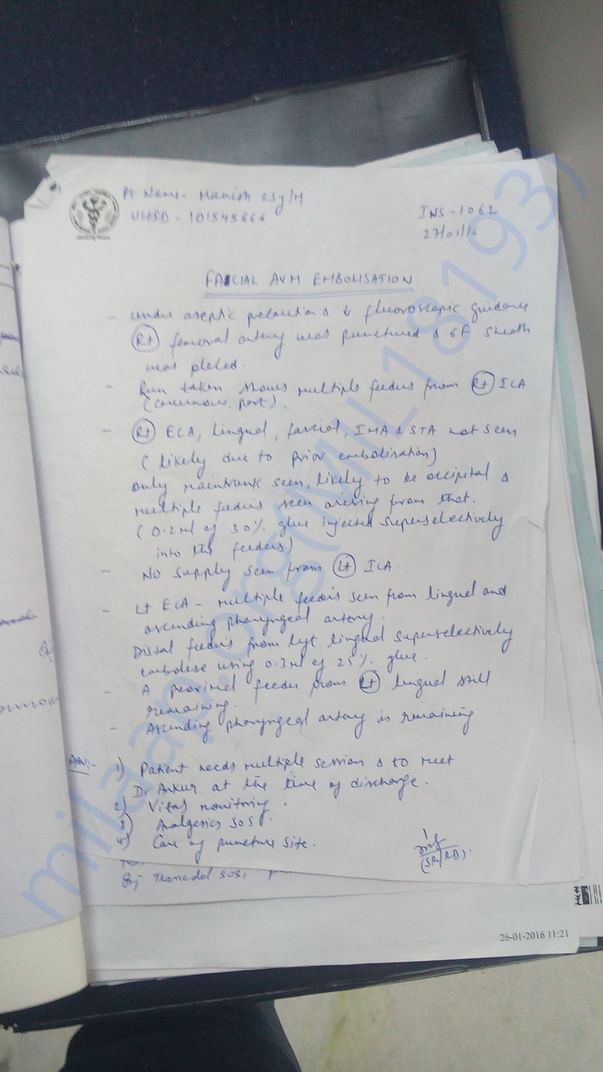 Pt Name- Manish 23y/M
UHID - 101545666
INS-1062
27/01/16
FACIAL AVM EMBOLISATION
- Under aseptic & fluoroscopic guidance
(Rt) femoral artery was punctured & 6F sheath
was placed.
- Run taken shows multiple feeders from (Rt) ICA
(cavernous part).
- (Rt) ECA, lingual, facial, IMA & STA not seen
(likely due to prior embolisation)
only main trunk seen, likely to be occipital &
multiple feeders seen arising from that.
(0.2ml of 30% glue injected superselectively
into the feeders)
- No supply seen from (Lt) ICA.
- Lt ECA - multiple feeders seen from lingual and
ascending pharyngeal artery.
Distal feeders from left lingual superselectively
embolise using 0.3ml of 25% glue.
- A proximal feeder from lingual still
remaining.
- Ascending pharyngeal artery is remaining
Adv:- 1) Patient needs multiple session & to meet
Dr Ankur at the time of discharge.
2) Vital monitoring.
3) Analgesics SOS.
4) Care of puncture site.
(SR/RD).
Inj Tramadol SOS,
26-01-2016 11:21
milaap.org(MIL18193)